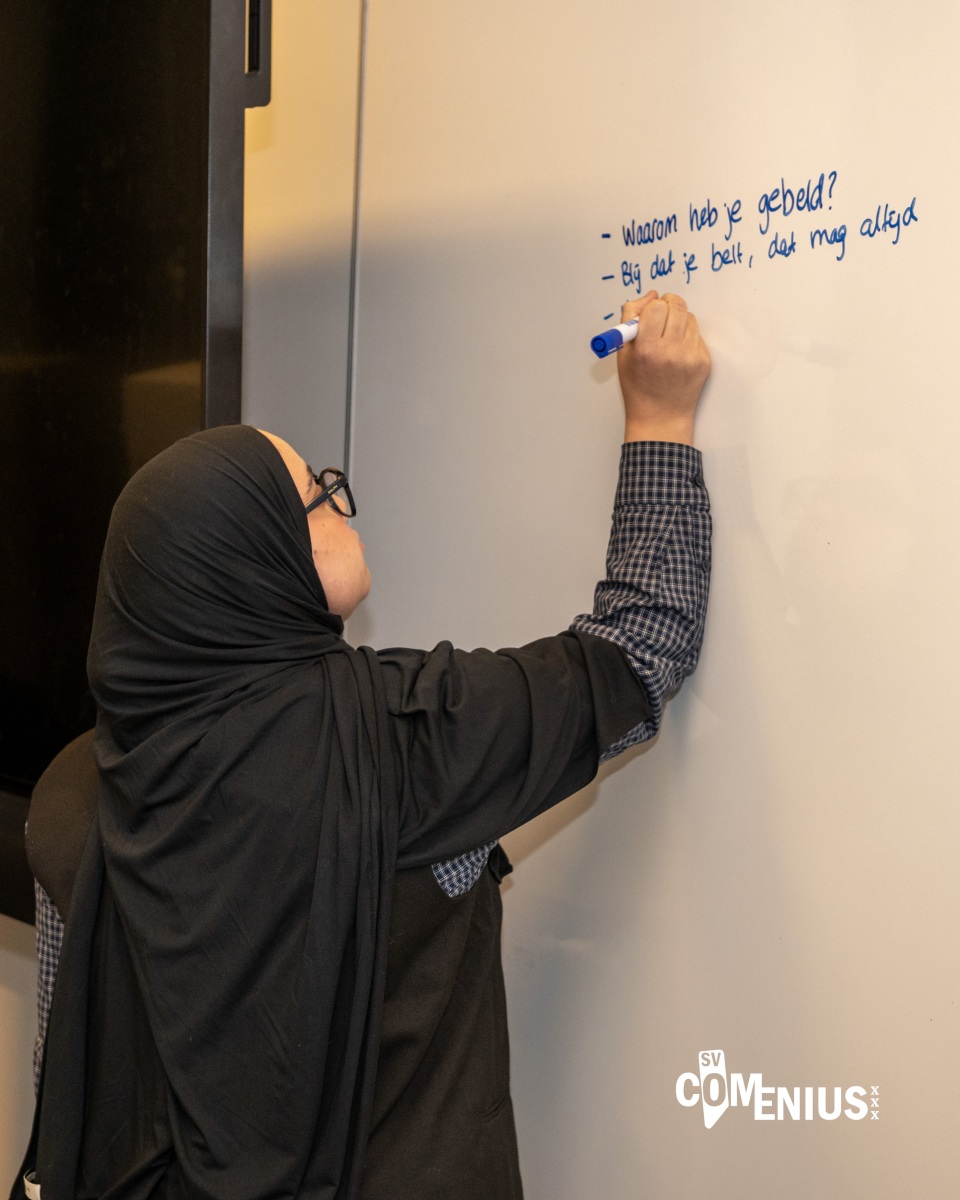 - Waarom heb je gebeld?
- Blij dat je belt, dat mag altijd
-
SV
COMENIUS
XXX